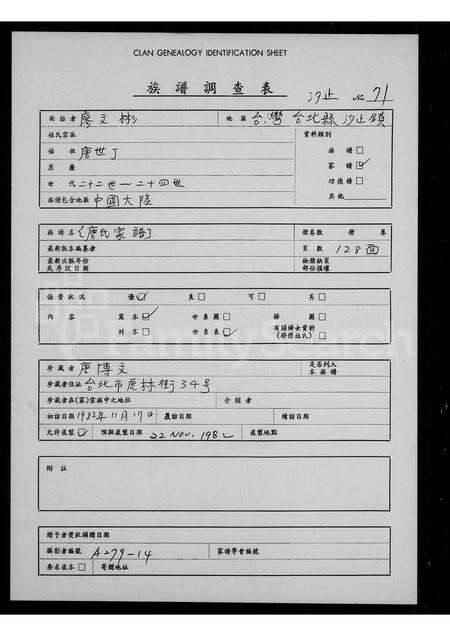 CLAN GENEALOGY IDENTIFICATION SHEET
族譜調查表
汐止 No 71
面訪者 廖文彬 地區 台灣台北縣汐止鎮
姓氏宗派 資料類別
始祖 唐世丁 族譜□
原籍 家譜☑
世代 二十二世—二十四世 功德榜□
族譜包含地區 中國大陸 其他
族譜名 (唐氏家譜) 冊卷數 冊 卷
最新版本編纂者 頁數 128面
最新出版年份 缺冊缺頁
或序跋日期 部份損壞
保管狀況 優☑ 良□ 可□ 劣□
內容 寫本☑ 世系圖□ 插圖□
刊本□ 世系表☑ 有關婦女資料□
(非僅姓氏)
珍藏者 唐博文 是否列入
本族譜
珍藏者住址 台北市虎林街34號
珍藏者在(家)宗族中之地位 介紹者
初訪日期 1982年11月17日 覆訪日期 續訪日期
允許複製☑ 預擬複製日期 22 NOV. 1982 複製地點
附註
贈予者獎狀頒贈日期
攝影者編號 A-79-14 家譜學會編號
要求底本□ 寄贈地址
FamilySearch